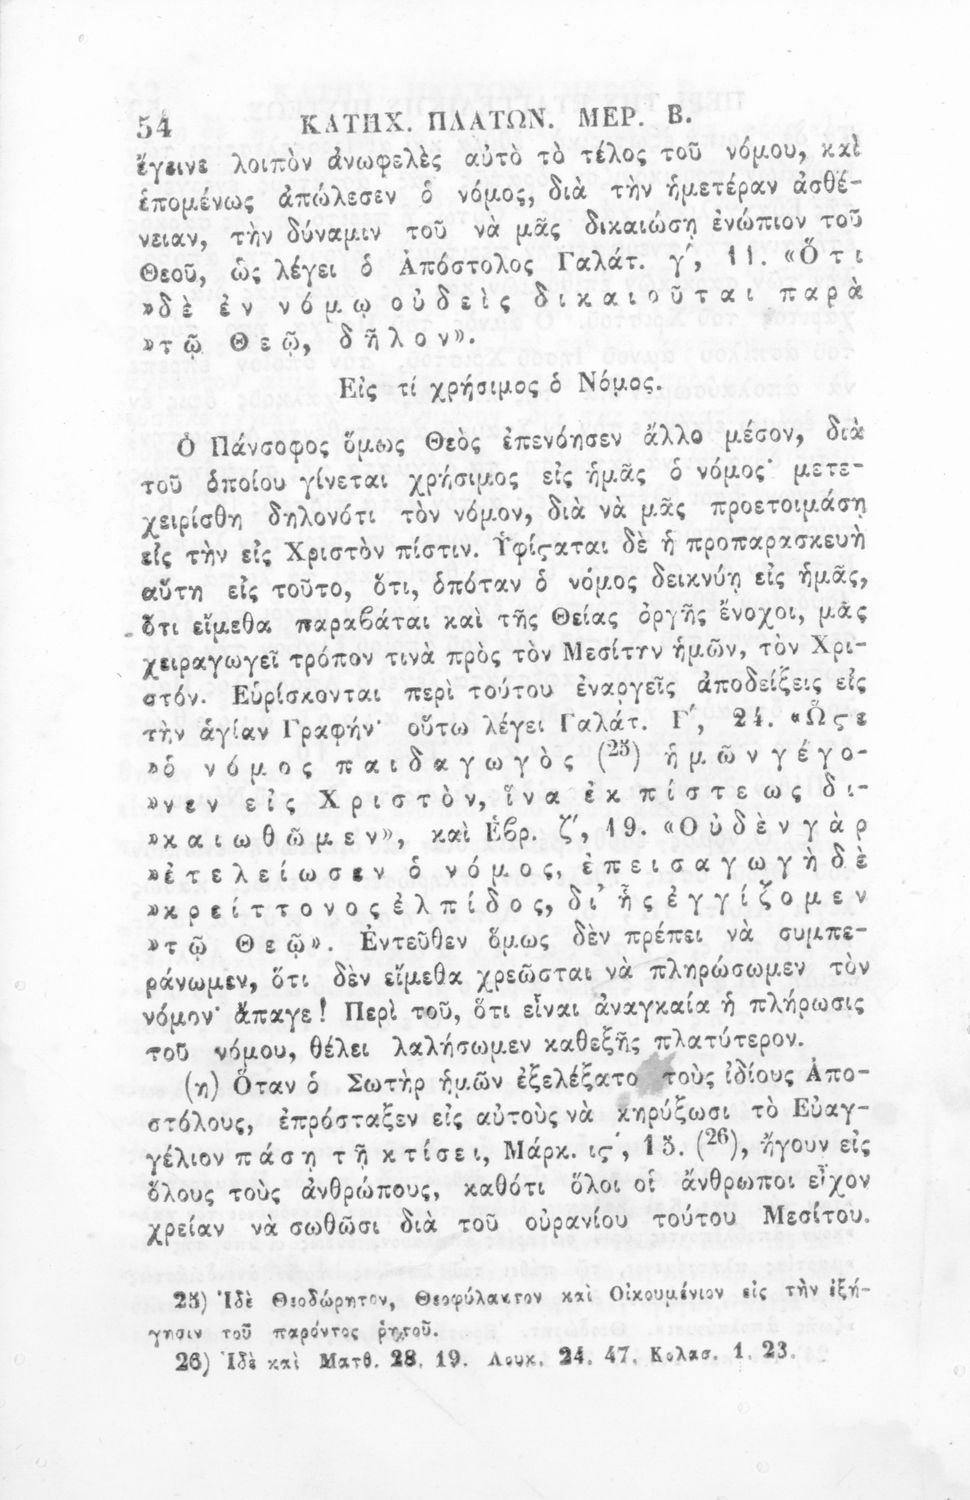 54 ΚΑΤΗΧ. ΠΛΑΤΩΝ. ΜΕΡ. Β.
ἔγεινε λοιπὸν ἀνωφελὲς αὐτὸ τὸ τέλος τοῦ νόμου, καὶ
ἑπομένως ἀπώλεσεν ὁ νόμος, διὰ τὴν ἡμετέραν ἀσθέ-
νειαν, τὴν δύναμιν τοῦ νὰ μᾶς δικαιώσῃ ἐνώπιον τοῦ
Θεοῦ, ὡς λέγει ὁ Ἀπόστολος Γαλάτ. γ΄, 11. «Ὅτι
»δὲ ἐν νόμῳ οὐδεὶς δικαιοῦται παρὰ
»τῷ Θεῷ, δῆλον».
Εἰς τί χρήσιμος ὁ Νόμος.
Ὁ Πάνσοφος ὅμως Θεὸς ἐπενόησεν ἄλλο μέσον, διὰ
τοῦ ὁποίου γίνεται χρήσιμος εἰς ἡμᾶς ὁ νόμος· μετε-
χειρίσθη δηλονότι τὸν νόμον, διὰ νὰ μᾶς προετοιμάσῃ
εἰς τὴν εἰς Χριστὸν πίστιν. Ὑφίϛαται δὲ ἡ προπαρασκευὴ
αὕτη εἰς τοῦτο, ὅτι, ὁπόταν ὁ νόμος δεικνύῃ εἰς ἡμᾶς,
ὅτι εἴμεθα παραβάται καὶ τῆς Θείας ὀργῆς ἔνοχοι, μᾶς
χειραγωγεῖ τρόπον τινὰ πρὸς τὸν Μεσίτην ἡμῶν, τὸν Χρι-
στόν. Εὑρίσκονται περὶ τούτου ἐναργεῖς ἀποδείξεις εἰς
τὴν ἁγίαν Γραφήν· οὕτω λέγει Γαλάτ. Γ΄, 24. «Ὥςε
»ὁ νόμος παιδαγωγὸς (25) ἡμῶν γέγο-
»νεν εἰς Χριστὸν, ἵνα ἐκ πίστεως δι-
»καιωθῶμεν», καὶ Ἑβρ. ζ΄, 19. «Οὐδὲν γὰρ
»ἐτελείωσεν ὁ νόμος, ἐπεισαγωγὴ δὲ
»κρείττονος ἐλπίδος, δι᾽ ἧς ἐγγίζομεν
»τῷ Θεῷ». Ἐντεῦθεν ὅμως δὲν πρέπει νὰ συμπε-
ράνωμεν, ὅτι δὲν εἴμεθα χρεῶσται νὰ πληρώσωμεν τὸν
νόμον· ἄπαγε! Περὶ τοῦ, ὅτι εἶναι ἀναγκαία ἡ πλήρωσις
τοῦ νόμου, θέλει λαλήσωμεν καθεξῆς πλατύτερον.
(η) Ὅταν ὁ Σωτὴρ ἡμῶν ἐξελέξατο τοὺς ἰδίους Ἀπο-
στόλους, ἐπρόσταξεν εἰς αὐτοὺς νὰ κηρύξωσι τὸ Εὐαγ-
γέλιον πάσῃ τῇ κτίσει, Μάρκ. ιϛ΄, 15. (26), ἤγουν εἰς
ὅλους τοὺς ἀνθρώπους, καθότι ὅλοι οἱ ἄνθρωποι εἶχον
χρείαν νὰ σωθῶσι διὰ τοῦ οὐρανίου τούτου Μεσίτου.
25) Ἰδὲ Θεοδώρητον, Θεοφύλακτον καὶ Οἰκουμένιον εἰς τὴν ἐξή-
γησιν τοῦ παρόντος ῥητοῦ.
26) Ἰδὲ καὶ Ματθ. 28. 19. Λουκ. 24. 47. Κολασ. 1. 23.